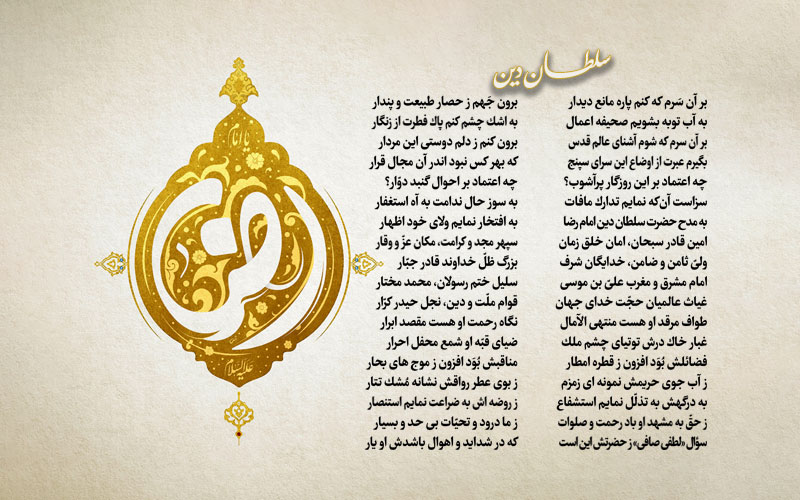 سلطان دین
بر آن سَرم که کنم پاره مانع دیدار
برون جَهم ز حصار طبیعت و پندار
به آب توبه بشویم صحیفه اعمال
به اشك چشم کنم پاك فطرت از زنگار
بر آن سرم که شوم آشنای عالم قدس
برون کنم ز دلم دوستی این مردار
بگیرم عبرت از اوضاع این سرای سپنج
که بهر کس نبود اندر آن مجال قرار
چه اعتماد بر این روزگار پرآشوب؟
چه اعتماد بر احوال گنبد دوّار؟
سزاست آن‌که نمایم تدارك مافات
به سوز حال ندامت به آه استغفار
به مدح حضرت سلطان دین امام رضا
به افتخار نمایم ولای خود اظهار
امین قادر سبحان، امان خلق زمان
سپهر مجد و کرامت، مکان عزّ و وقار
ولیّ ثامن و ضامن، خدایگان شرف
بزرگ ظلّ خداوند قادر جبّار
امام مشرق و مغرب علیّ بن موسی
سلیل ختم رسولان، محمد مختار
غیاث عالمیان حجّت خدای جهان
قوام ملّت و دین، نجل حیدر کرّار
طواف مرقد او هست منتهی الآمال
نگاه رحمت او هست مقصد ابرار
غبار خاك درش توتیای چشم ملك
ضیای قبّه او شمع محفل احرار
فضائلش بُوَد افزون ز قطره امطار
مناقبش بُوَد افزون ز موج های بحار
ز آب جوی حریمش نمونه ای زمزم
ز بوی عطر رواقش نشانه مُشك تتار
به درگهش به تذلّل نمایم استشفاع
ز روضه اش به ضراعت نمایم استنصار
ز حقّ به مشهد او باد رحمت و صلوات
ز ما درود و تحیّات بی حد و بسیار
سؤال «لطفی صافی» ز حضرتش این است
که در شداید و اهوال باشدش او یار
یا امام
الرضا
علیه السلام